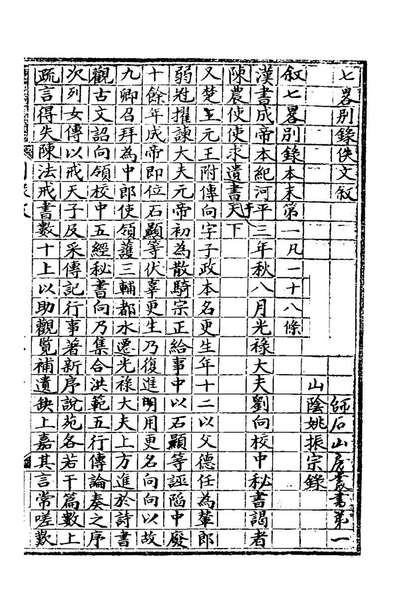 七畧别錄佚文叙 師石山房叢書第一
山陰姚振宗錄
叙七畧别錄本末第一凡一十八條
漢書成帝本紀河平三年秋八月光祿大夫劉向校中秘書謁者
陳農使使求遺書于天下
又楚元王附傳向字子政本名更生年十二以父德任為輦郎
弱冠擢諫大夫元帝初為散騎宗正給事中以石顯等誣陷中廢
十餘年成帝即位石顯等伏辜更生乃復進明用更名向向以故
九卿召拜為中郎使領護三輔都水遷光祿大夫上方進於詩書
觀古文詔向領校中五經秘書向乃集合洪範五行傳論奏之序
次列女傳以戒天子及采傳記行事著新序說苑各若干篇數上
疏言得失陳法戒書數十上以助觀覽補遺缺上嘉其言常嗟歎